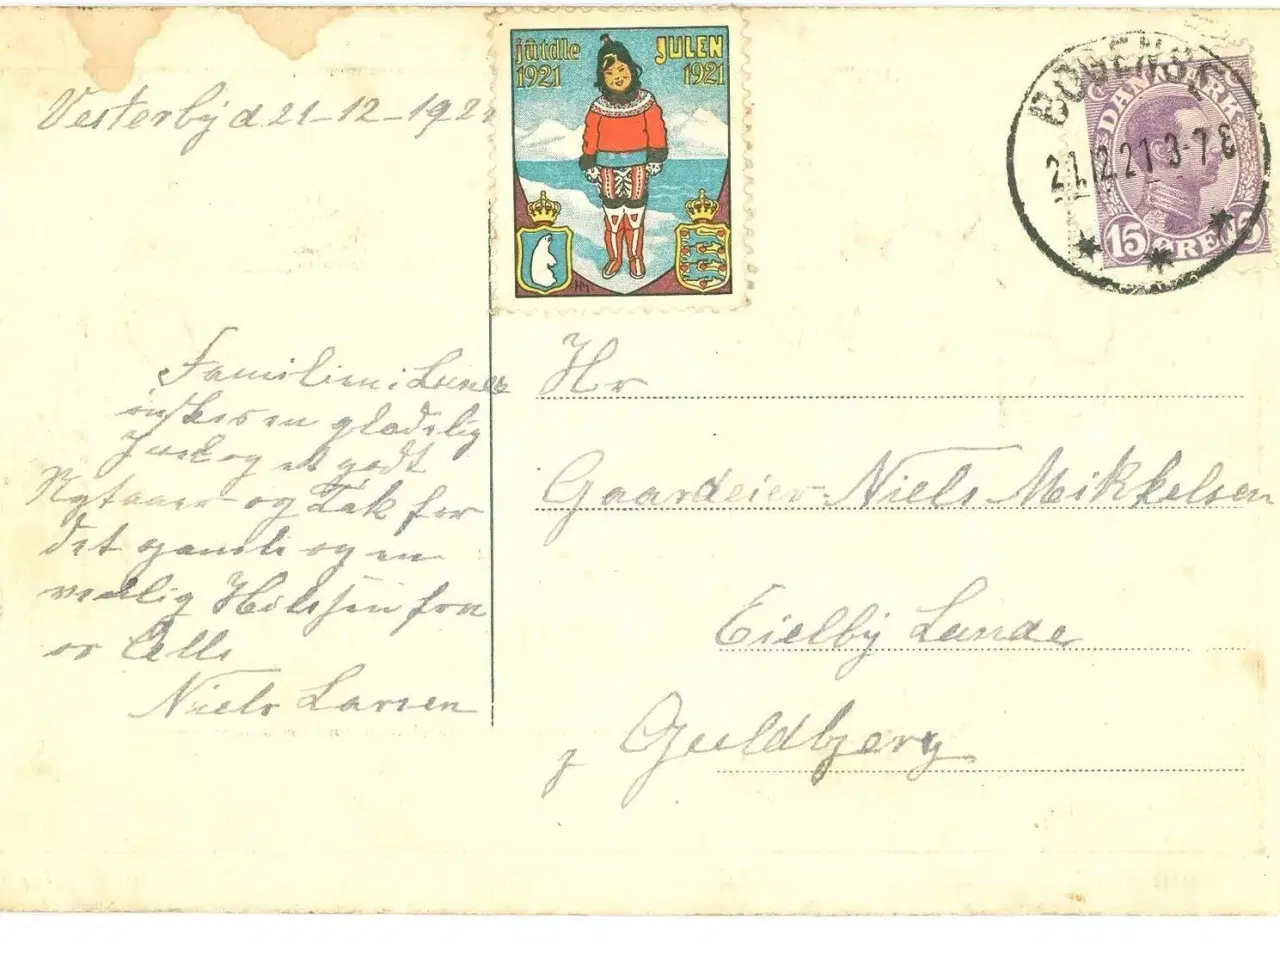 Vesterby d 21-12-1921
jûtdle
1921
JULEN
1921
BOGENSE
21.12.21 3-7 E
DANMARK
15 ØRE 15
Familien i Lunde
ønsker en glædelig
Juel og et godt
Nytaaer og Tak for
det gamle og en
venlig Hilsen fra
os Alle
Niels Larsen
Hr
Gaardeier Niels Mikkelsen
Eielby Lunde
Guldbjerg